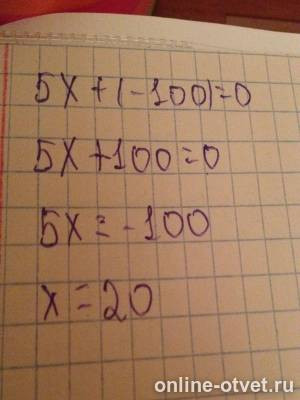 5x+(-100)=0
5x+100=0
5x=-100
x=20
online-otvet.ru